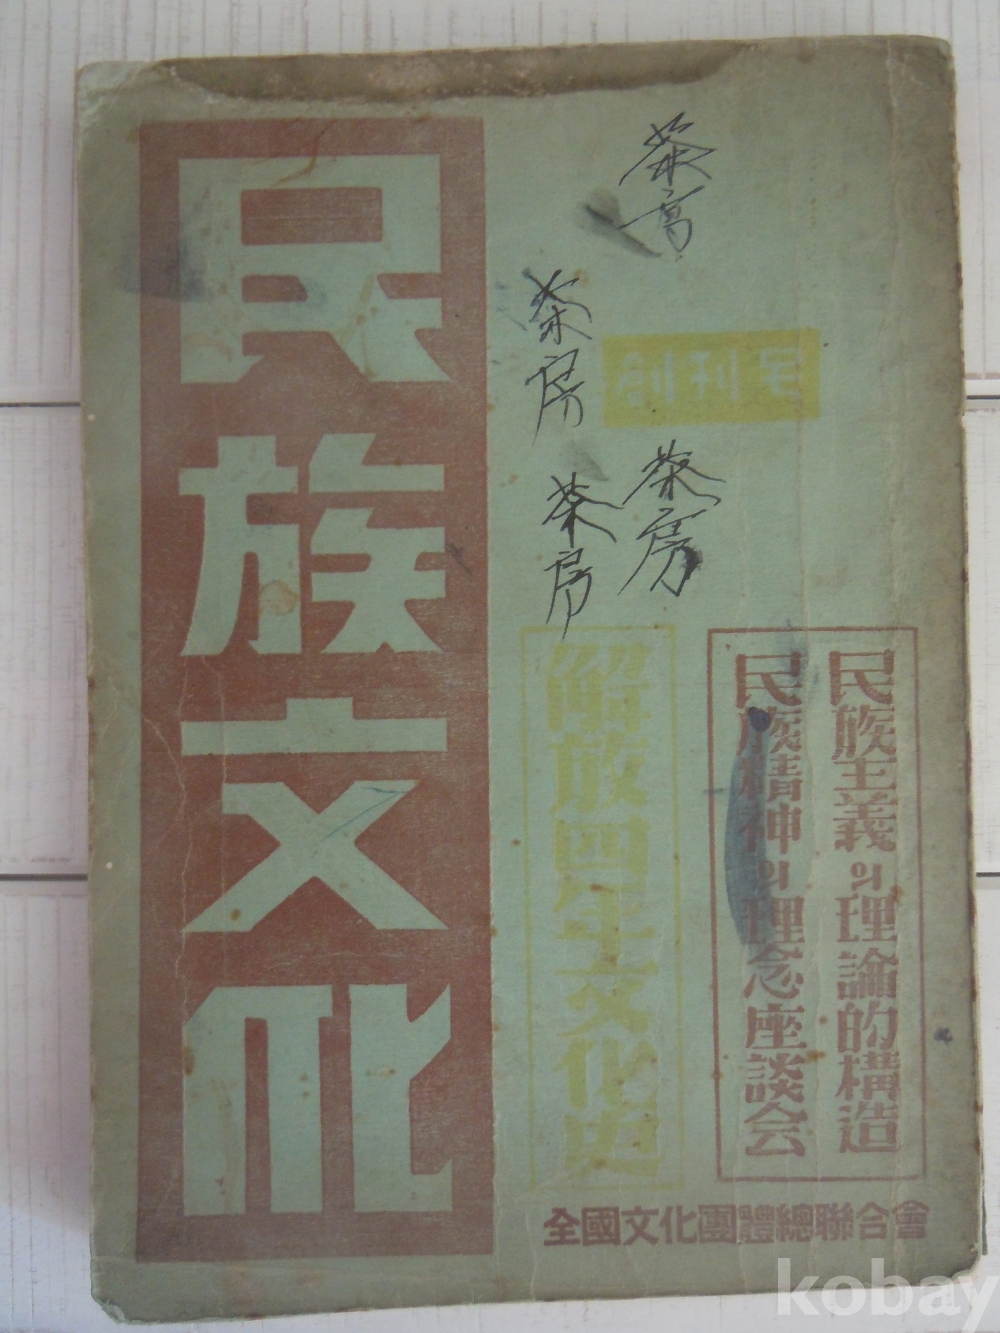 民族文化
茶房
茶房
茶房
創刊号
民族主義의理論的構造
民族精神의理念座談会
解放四年文化史
全國文化團體總聯合會
kobay